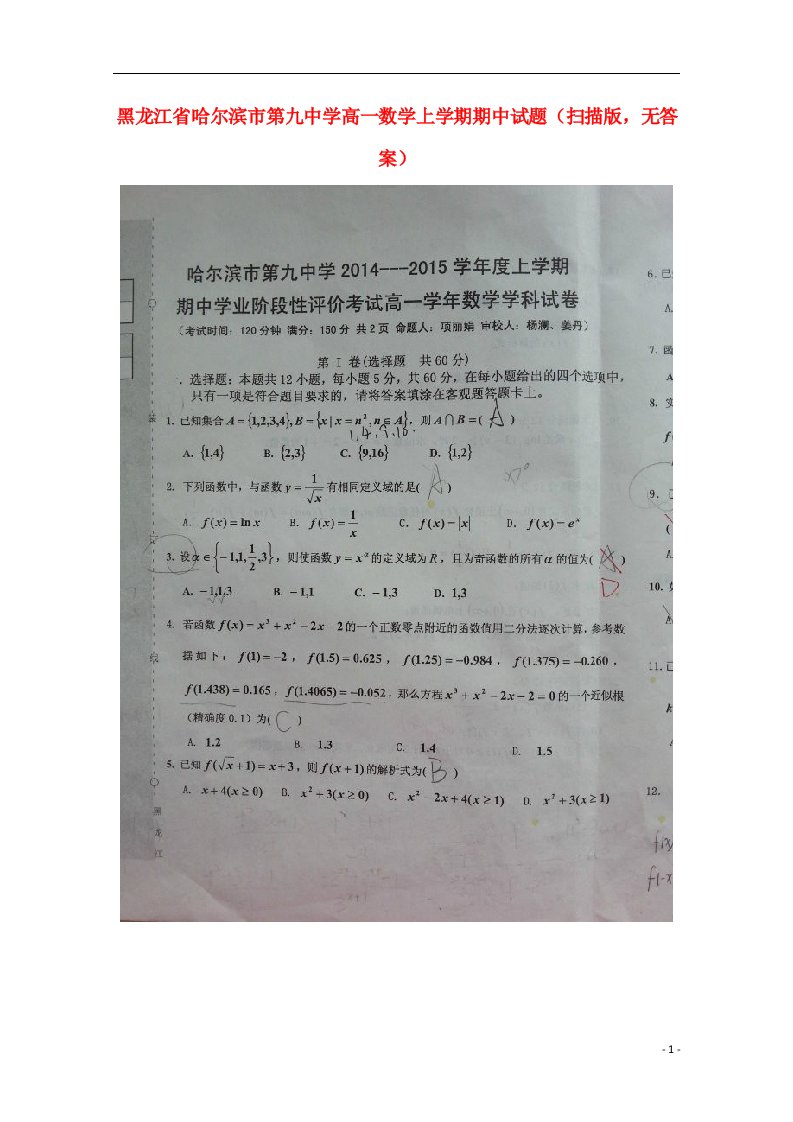 黑龙江省哈尔滨市第九中学高一数学上学期期中试题（扫描版，无答
案）
哈尔滨市第九中学 2014---2015 学年度上学期
期中学业阶段性评价考试高一学年数学学科试卷
（考试时间：120分钟 满分：150分 共2页 命题人：项丽娟 审校人：杨澜、姜丹）
第 I 卷(选择题 共60分)
．选择题：本题共12小题，每小题5分，共60分，在每小题给出的四个选项中，
只有一项是符合题目要求的，请将答案填涂在客观题答题卡上。
1. 已知集合 A = {1,2,3,4}, B = {x | x = n², n ∈ A}，则 A ∩ B = ( A )
1,4,9,16
A. {1,4} B. {2,3} C. {9,16} D. {1,2}
2. 下列函数中，与函数 y = 1/√x 有相同定义域的是( A ) x>0
A. f(x) = ln x B. f(x) = 1/x C. f(x) = |x| D. f(x) = eˣ
3. 设 α ∈ {-1,1,1/2,3}，则使函数 y = xᵅ 的定义域为 R，且为奇函数的所有 α 的值为( )
D
A. -1,1,3 B. -1,1 C. -1,3 D. 1,3
4. 若函数 f(x) = x³ + x² - 2x - 2 的一个正数零点附近的函数值用二分法逐次计算，参考数
据如下：f(1) = -2，f(1.5) = 0.625，f(1.25) = -0.984，f(1.375) = -0.260，
f(1.438) = 0.165，f(1.4065) = -0.052，那么方程 x³ + x² - 2x - 2 = 0 的一个近似根
（精确度 0.1）为( C )
A. 1.2 B. 1.3 C. 1.4 D. 1.5
5. 已知 f(√x + 1) = x + 3，则 f(x + 1) 的解析式为( B )
A. x + 4(x ≥ 0) B. x² + 3(x ≥ 0) C. x² - 2x + 4(x ≥ 1) D. x² + 3(x ≥ 1)
装
订
线
黑
龙
江
6. 已
A.
7. 函
A
8. 实
f(
9. 已
(
A.
10.
11. 已
A
12.
f(x
f(-x
- 1 -